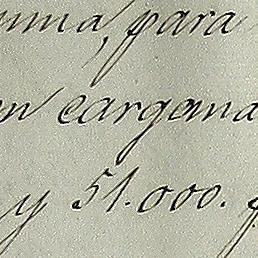 uma, para
en cargama
y 51.000.